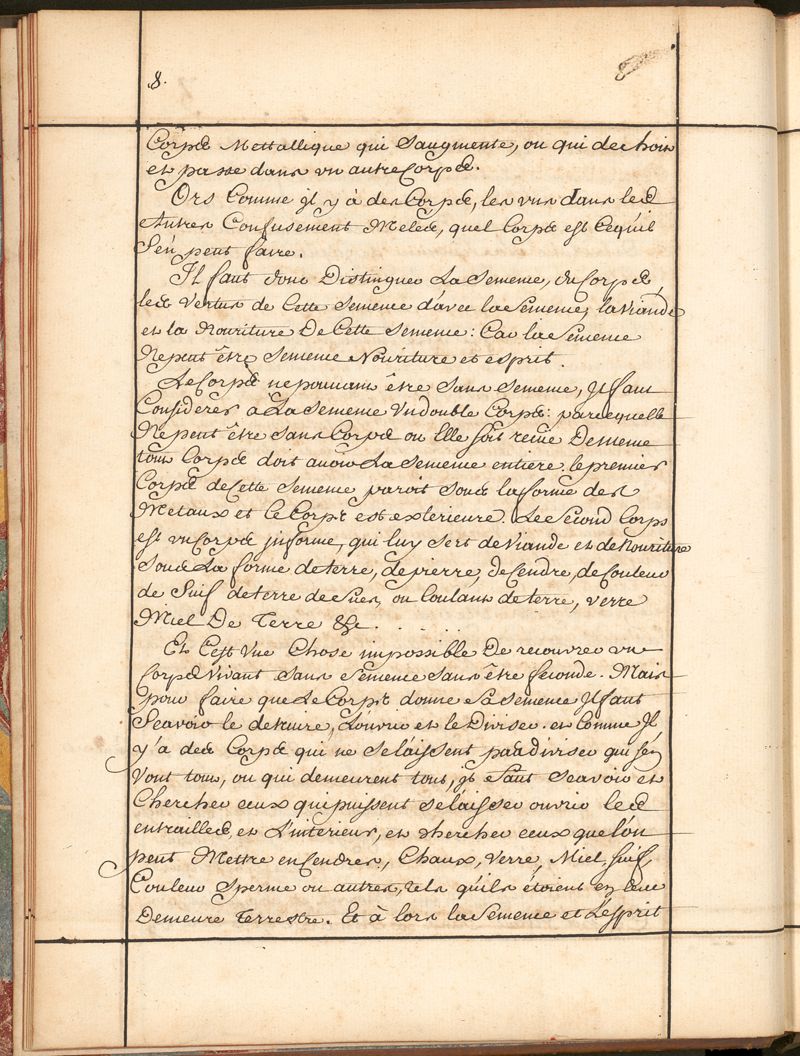 8.
Corps Mettallique qui S'augmente, ou qui dechoit
et passe dans un autre Corps.
Ors Comme jl y à des Corps, les uns dans les
Autres Confusement Melés, quel Corps est Cequ'il
S'en peut faire.
Il faut donc Distinguer La Semence, du Corps,
les Vertus de Cette Semence d'avec la Semence, la Viande
et la Nouriture De Cette Semence: Car la Semence
Ne peut être Semence Nouriture et esprit.
Le Corps ne pouvant être Sans Semence, jl faut
Considerer à La Semence Un double Corps: parcequ'elle
Ne peut être Sans Corps ou Elle soit reçue Demême
tout Corps doit avoir La Semence entiere. le premier
Corps de Cette Semence paroit Sous la forme des
Metaux et le Corps est exterieure. Le Second Corps
est un Corps jnforme, qui luy sert de Viande et de Nouriture
Sous La forme de terre, de pierre, de Cendre, de Couleur
de Suif de terre de Suer, ou Coulant de terre, verre
Miel De Terre &c. . . . .
Et C'est Une Chose impossible De recouvrer un
Corps Vivant Sans Semence Sans être feconde. Mais
pour faire que Le Corps donne Sa Semence jl faut
Sçavoir le detruire, L'ouvrir et le Diviser. et Comme jl
y'a des Corps qui ne Se laissent pas diviser qui s'en
Vont tous, ou qui demeurent tous, jl faut Sçavoir et
Chercher ceux qui puissent se laisser ouvrir les
entrailles, et L'interieur, et chercher ceux que l'on
peut Mettre en Cendres, Chaux, Verre, Miel, Suif,
Couleur Sperme ou autres, tels qu'ils étoient en leur
Demeure Terrestre. Et à lors la Semence et L'esprit